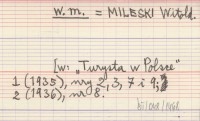 w. m. = MILESKI Witold.
[w: „Turysta w Polsce"
1 (1935), nry 2, 3, 7 i 9;
2 (1936), nr 8.